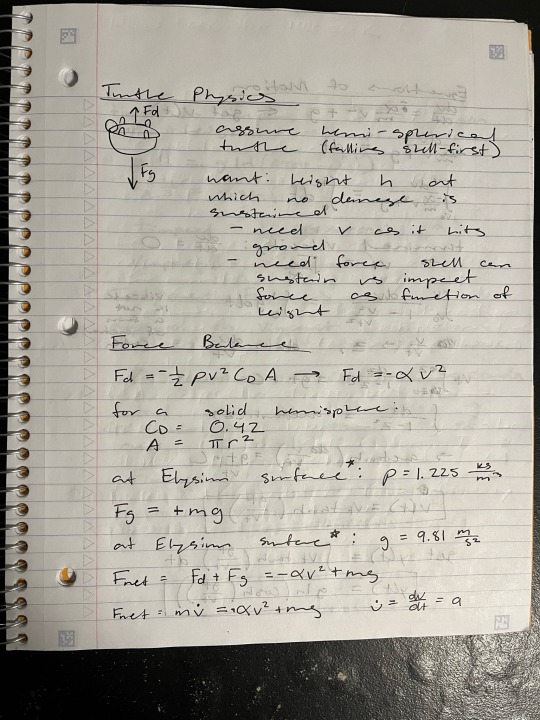 Turtle Physics
Fd
Fg
assume hemi-spherical
turtle (falling shell-first)
want: height h at
which no damage is
sustained
- need v as it hits
ground
- need force shell can
sustain vs impact
force as function of
height
Force Balance
Fd = -1/2 ρv² CD A → Fd = -αv²
for a solid hemisphere:
CD = 0.42
A = πr²
at Elysium surface*: ρ = 1.225 kg/m³
Fg = +mg
at Elysium surface*: g = 9.81 m/s²
Fnet = Fd + Fg = -αv² + mg
Fnet = mv̇ = -αv² + mg v̇ = dv/dt = a